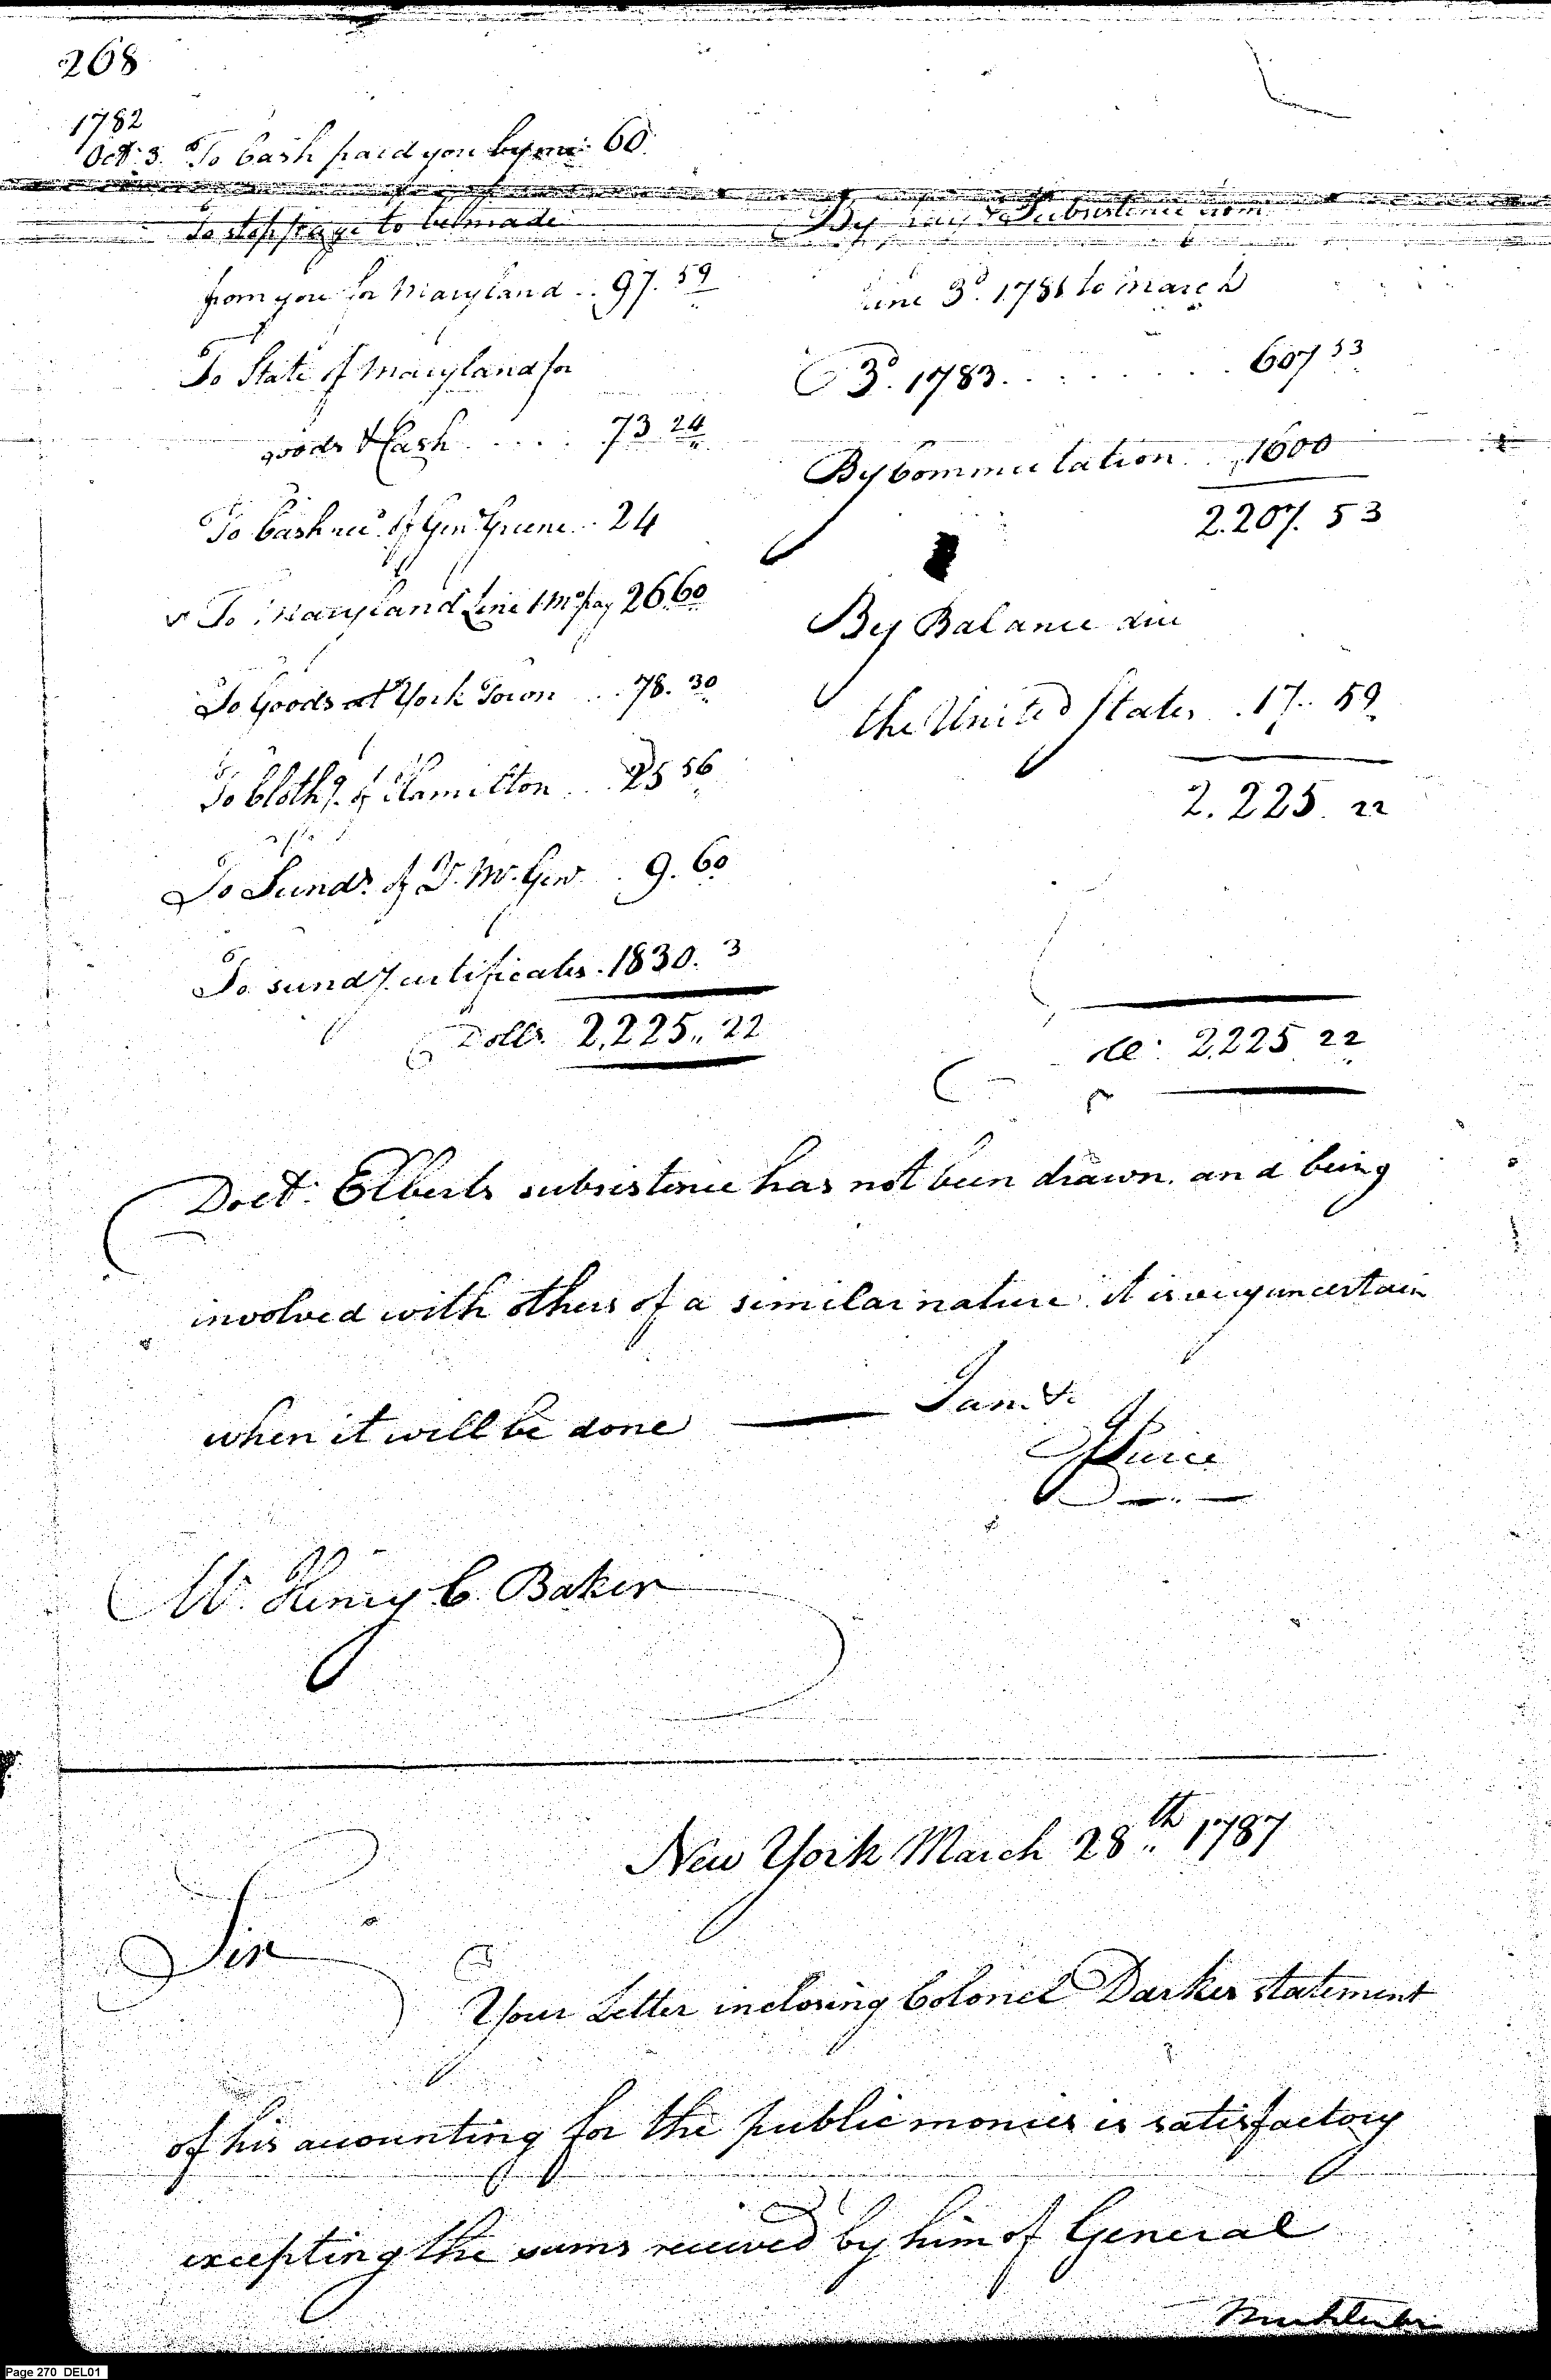 268
1782
Oct. 3. To Cash paid you by me 60.
To stoppage to be made
from you for Maryland .. 97. 59
To State of Maryland for
goods & Cash ..... 73 24
To Cash rec.d of Gen.l Greene .. 24
To Maryland Line 1 Mo pay 26.60
To Goods at York Town ... 78. 30
To Cloth.g of Hamilton ... 25 56
To Sund.s of D. Mc. Gew .. 9. 60
To sund.y certificates . 1830. 3
Dolls. 2,225,, 22
By pay & Subsistence from
June 3d. 1781 to march
3d. 1783 ........ 607 53
By Commutation ... 1600
2.207. 53
By Balance due
the United States . 17.. 59
2. 225. 22
2,225 22
Doct. Elberts subsistence has not been drawn, and being
involved with others of a similar nature it is very uncertain
when it will be done —— I am &c
Pierce
Mr. Henry C. Baker
New York March 28th 1787
Sir
Your Letter inclosing Colonel Darkes statement
of his accounting for the public monies is satisfactory
excepting the sums received by him of General